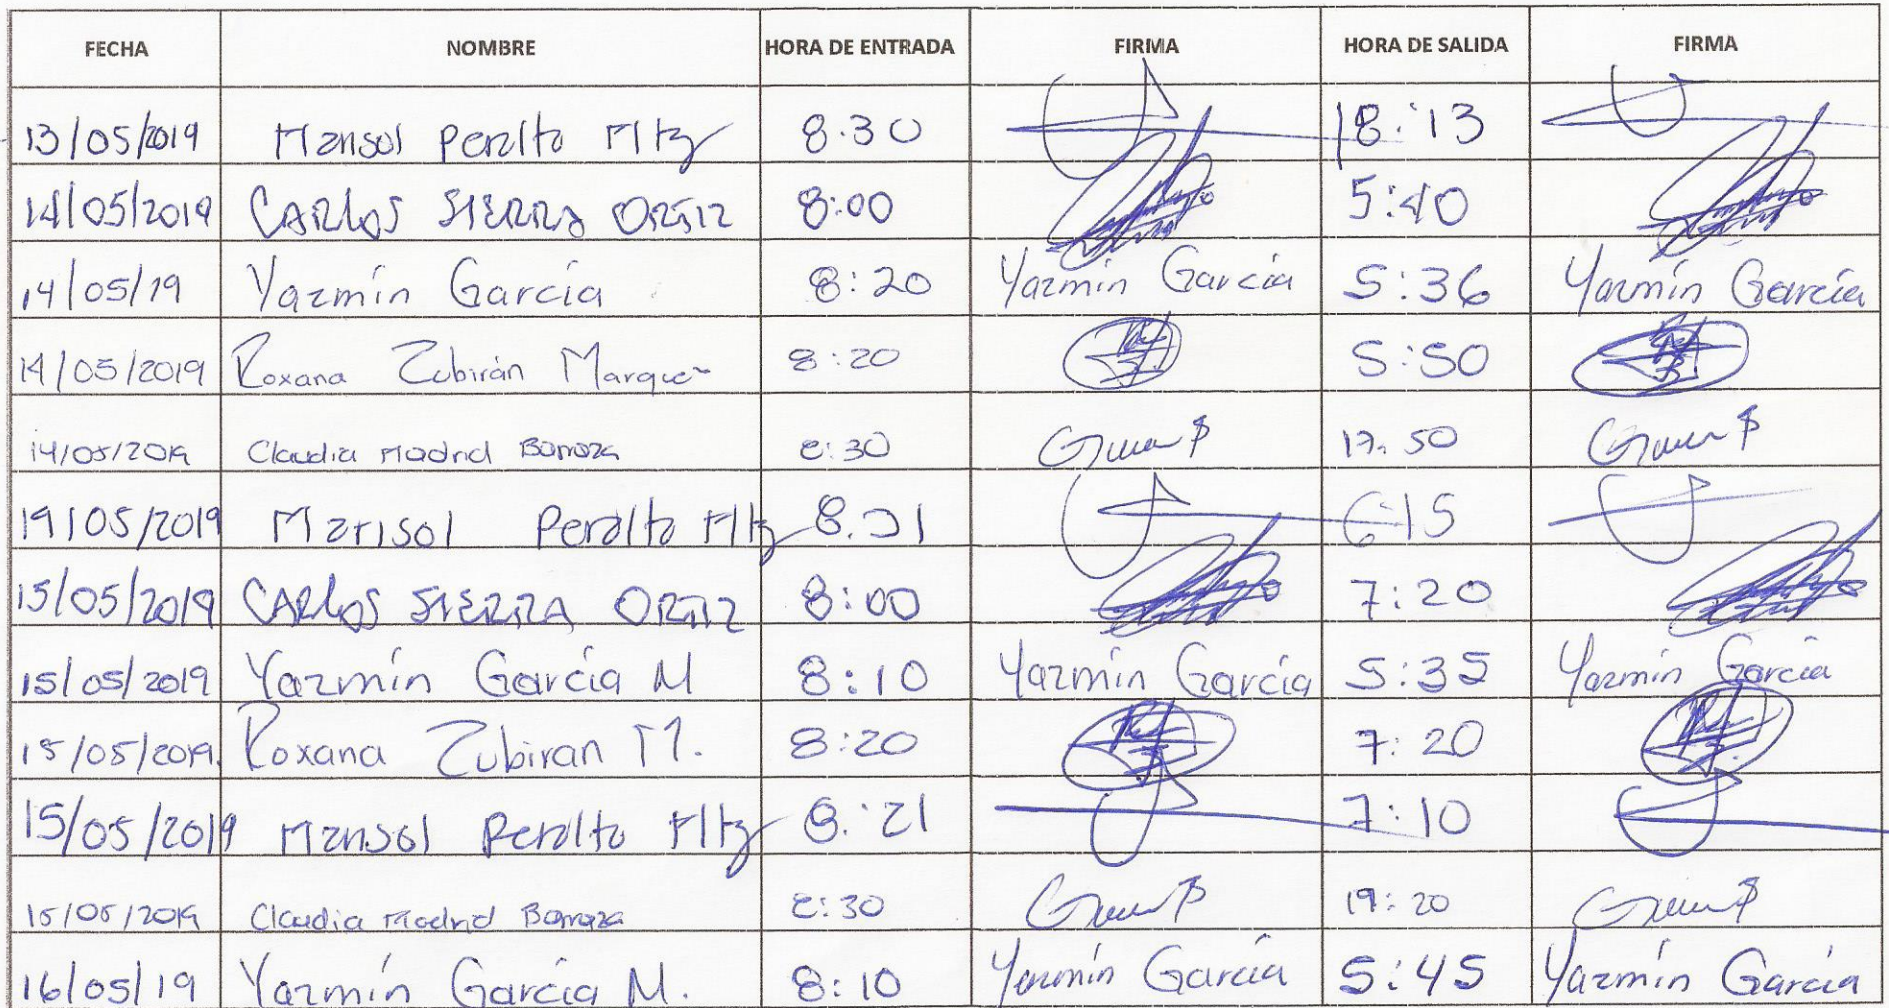 FECHA NOMBRE HORA DE ENTRADA FIRMA HORA DE SALIDA FIRMA
13/05/2019 Marisol Peralta Mtz 8:30 18:13
14/05/2019 CARLOS SIERRA ORTIZ 8:00 5:40
14/05/19 Yazmín García 8:20 Yazmín García 5:36 Yazmín García
14/05/2019 Roxana Zubirán Marquez 8:20 5:50
14/05/2019 Claudia Madrid Barraza 8:30 17:50
14/05/2019 Marisol Peralta Mtz 6:15
15/05/2019 CARLOS SIERRA ORTIZ 8:00 7:20
15/05/2019 Yazmín García M 8:10 Yazmín García 5:35 Yazmín García
15/05/2019 Roxana Zubiran M. 8:20 7:20
15/05/2019 Marisol Peralta Mtz 8:21 7:10
15/05/2019 Claudia Madrid Barraza 8:30 19:20
16/05/19 Yazmín García M. 8:10 Yazmín García 5:45 Yazmín García